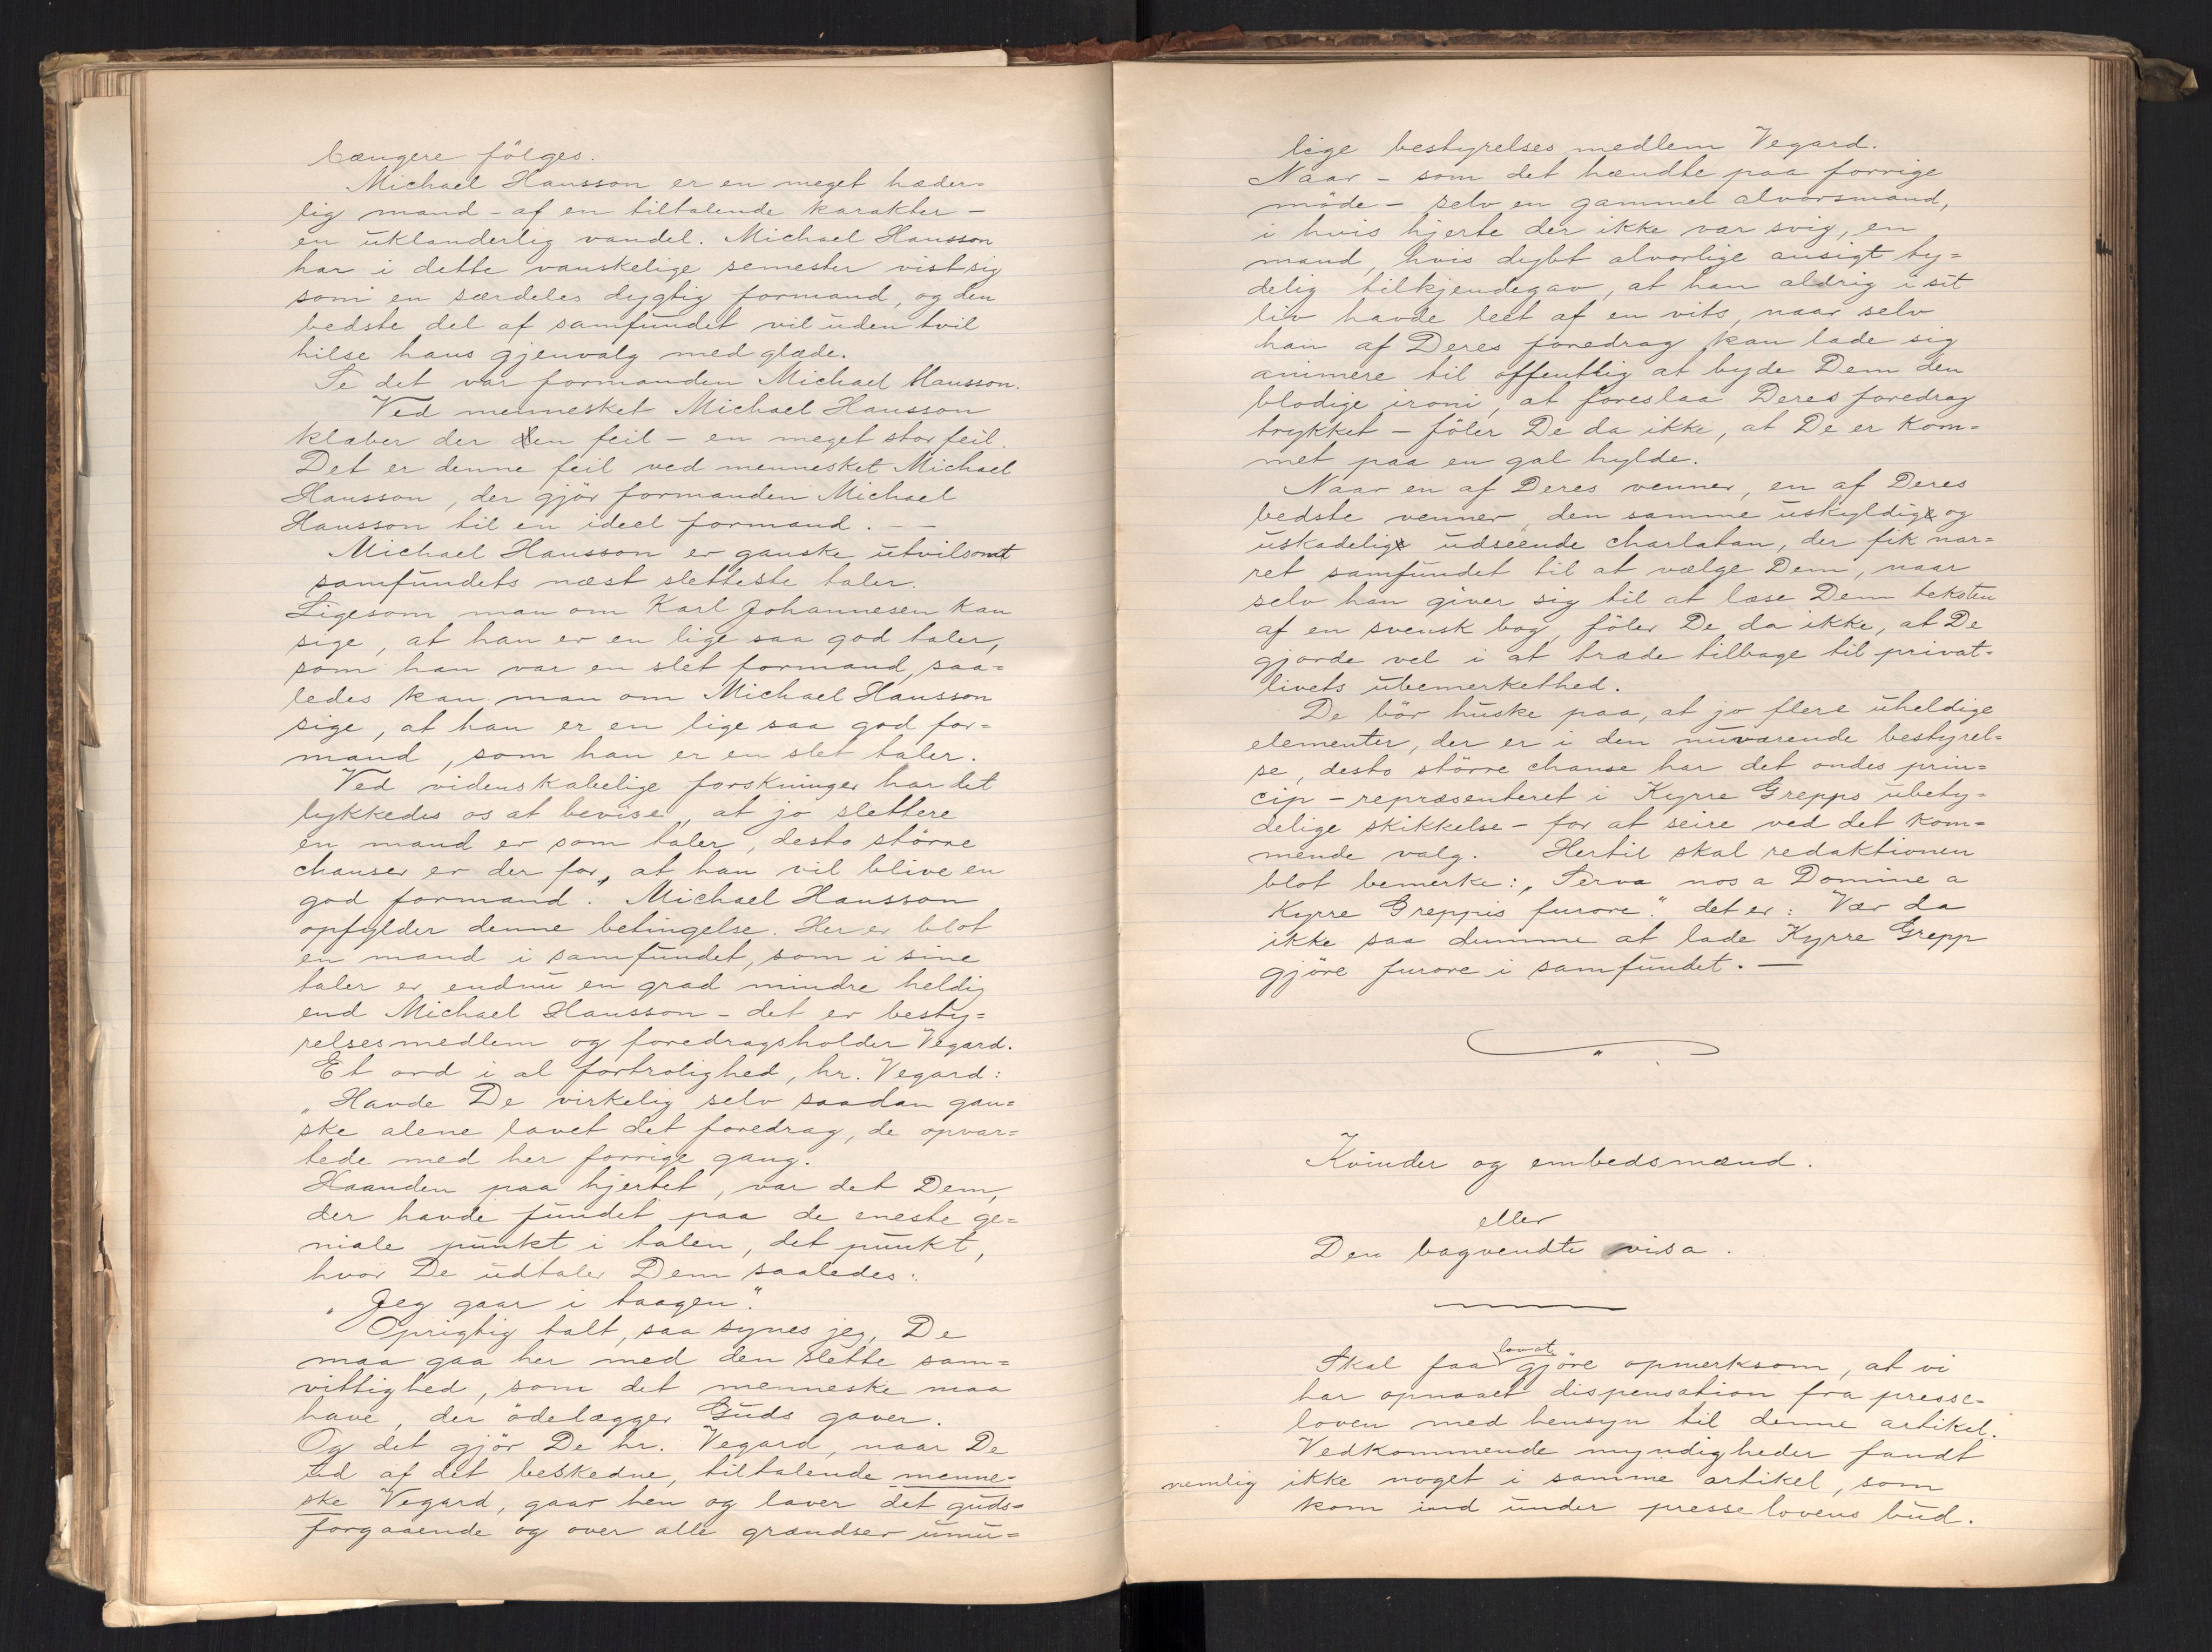 længere fölges.
Michael Hansson er en meget hæder=
lig mand - af en tiltalende karakter -
en uklanderlig vandel. Michael Hansson
har i dette vanskelige semester vist sig
som en særdeles dygtig formand, og den
bedste del af samfundet vil uden tvil
hilse hans gjenvalg med glæde.
Se det var formanden Michael Hansson.
Ved mennesket Michael Hansson
klæber der en feil - en meget stor feil.
Det er denne feil ved mennesket Michael
Hansson, der gjör formanden Michael
Hansson til en ideel formand. - -
Michael Hansson er ganske utvilsomt
samfundets næst sletteste taler.
Ligesom man om Karl Johannesen kan
sige, at han er en lige saa god taler,
som han var en slet formand, saa=
ledes kan man om Michael Hansson
sige, at han er en lige saa god for=
mand, som han er en slet taler.
Ved videnskabelige forskninger har det
lykkedes os at bevise, at jo slettere
en mand er som taler, desto större
chanser er der for, at han vil blive en
god formand. Michael Hansson
opfylder denne betingelse. Her er blot
en mand i samfundet, som i sine
taler er endnu en grad mindre heldig
end Michael Hansson - det er besty=
relsesmedlem og foredragsholder Vegard.
Et ord i al fortrolighed, hr. Vegard:
„Havde De virkelig selv saadan gan=
ske alene lavet det foredrag, de opvar=
tede med her forrige gang.
Haanden paa hjertet, var det Dem,
der havde fundet paa de eneste ge=
niale punkt i talen, det punkt,
hvor De udtaler Dem saaledes:
„Jeg gaar i taagen".
Oprigtig talt, saa synes jeg, De
maa gaa her med den slette sam=
vittighed, som det menneske maa
have, der ödelægger Guds gaver.
Og det gjör De hr. Vegard, naar De
ud af det beskedne, tiltalende menne-
ske Vegard, gaar hen og laver det guds=
forgaaende og over alle grændser umu=
lige bestyrelses medlem Vegard.
Naar - som det hændte paa forrige
möde - selv en gammel alvorsmand,
i hvis hjerte der ikke var svig, en
mand, hvis dybt alvorlige ansigt ty=
delig tilkjendegav, at han aldrig i sit
liv havde leet af en vits, naar selv
han af Deres foredrag kan lade sig
animere til offentlig at byde Dem den
blodige ironi, at foreslaa Deres foredrag
trykket - föler De da ikke, at De er kom=
met paa en gal hylde.
Naar en af Deres venner, en af Deres
bedste venner, den samme uskyldig og
uskadelig udseende charlatan, der fik nar=
ret samfundet til at vælge Dem, naar
selv han giver sig til at læse Dem teksten
af en svensk bog, föler De da ikke, at De
gjorde vel i at træde tilbage til privat-
livets ubemerkethed.
De bör huske paa, at jo flere uheldige
elementer, der er i den nuværende bestyrel=
se, desto större chanse har det ondes prin=
cip - repræsenteret i Kyrre Grepps ubety=
delige skikkelse - for at seire ved det kom=
mende valg. Hertil skal redaktionen
blot bemerke: „Serva nos a Domine a
Kyrre Greppis furore". det er: Vær da
ikke saa dumme at lade Kyrre Grepp
gjöre furore i samfundet. -
Kvinder og embedsmænd.
eller
Den bagvendte visa.
Skal faa lovt gjöre opmerksom, at vi
har opnaaet dispensation fra presse-
loven med hensyn til denne artikel.
Vedkommende myndigheder fandt
nemlig ikke noget i samme artikel, som
kom ind under presselovens bud.